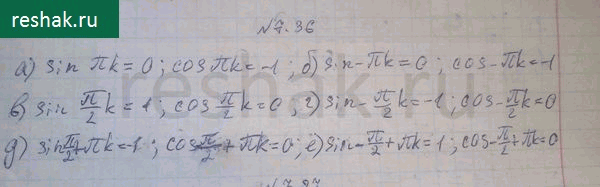 reshak.ru
№7.36
а) sin πk=0; cos πk=-1; б) sin-πk=0; cos-πk=-1
в) sin π/2 k=1; cos π/2 k=0; г) sin-π/2 k=-1; cos-π/2 k=0
д) sin π/2+πk=1; cos π/2+πk=0; е) sin-π/2+πk=1; cos-π/2+πk=0